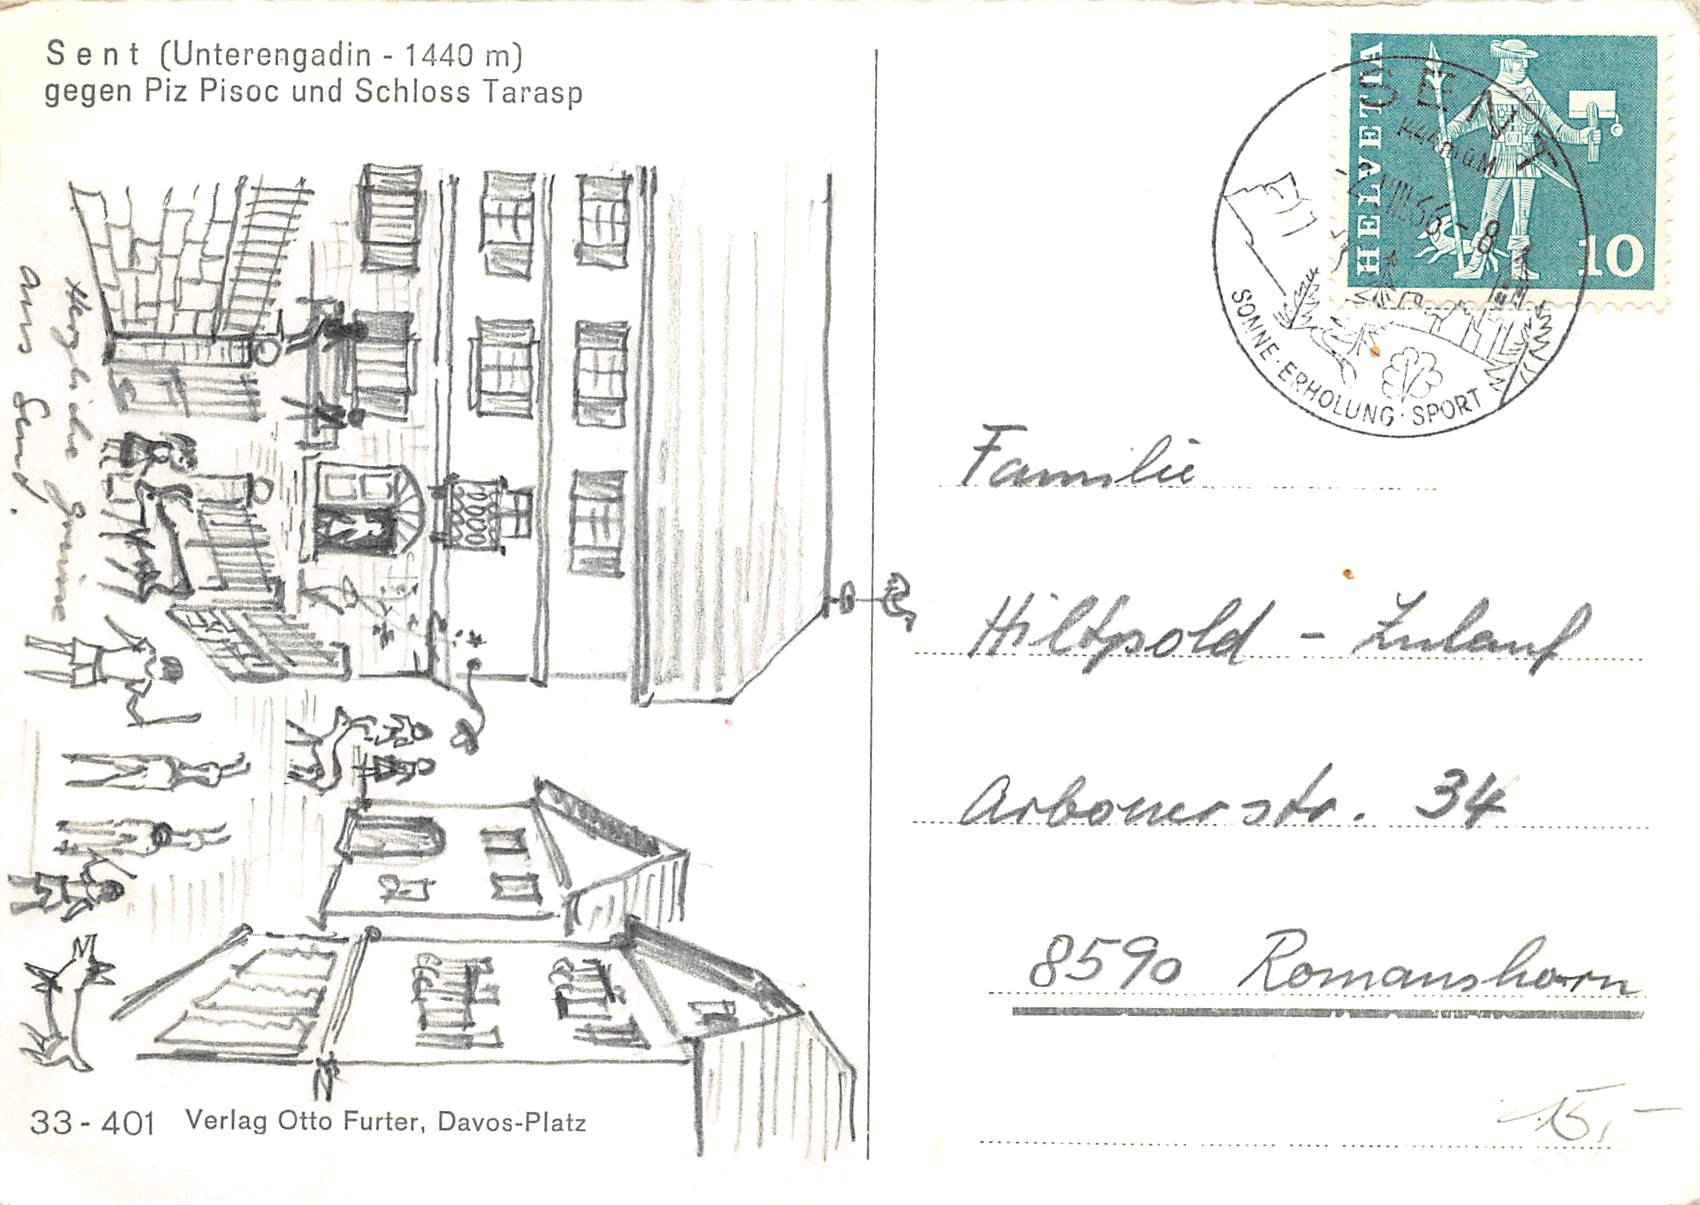 Sent (Unterengadin - 1440 m)
gegen Piz Pisoc und Schloss Tarasp
Herzliche Grüsse
aus Sent.
33-401 Verlag Otto Furter, Davos-Platz
HELVETIA
10
SENT
1444 m ü. M.
VIII.66-8
SONNE·ERHOLUNG·SPORT
Familie
Hiltpold - Zulauf
Arbonerstr. 34
8590 Romanshorn
15,-